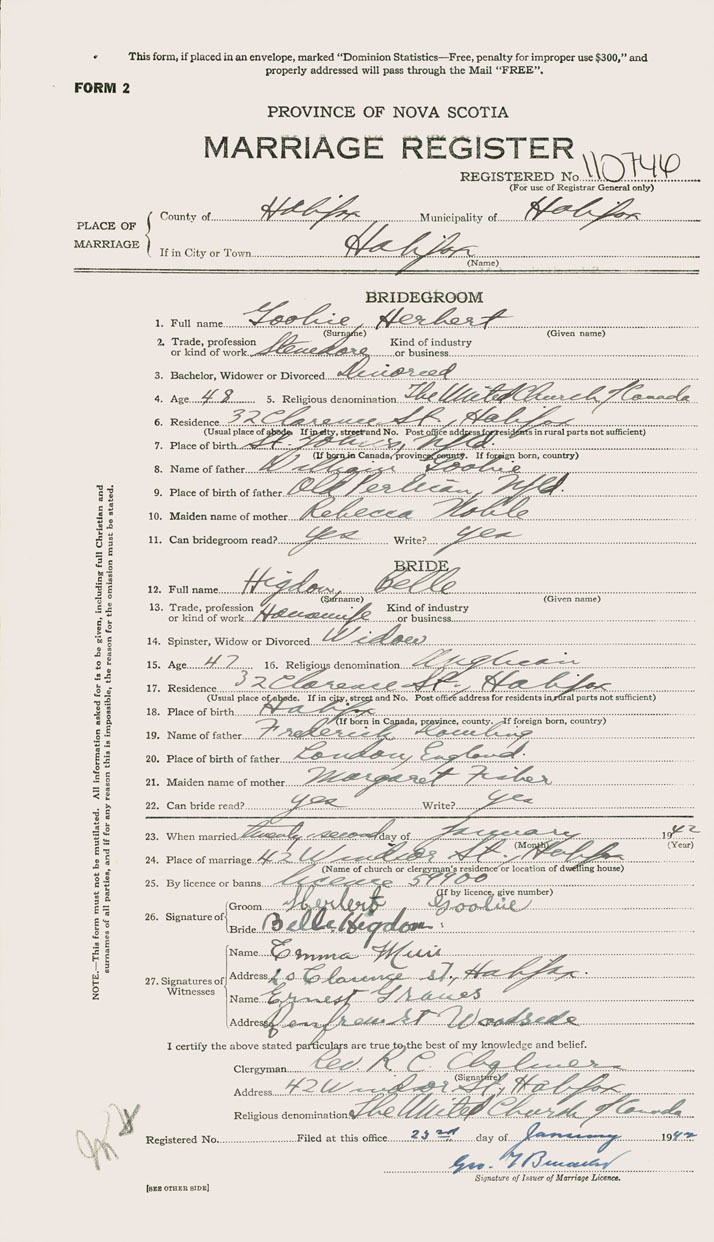 This form, if placed in an envelope, marked "Dominion Statistics—Free, penalty for improper use $300," and
properly addressed will pass through the Mail "FREE".
FORM 2
PROVINCE OF NOVA SCOTIA
MARRIAGE REGISTER
REGISTERED No. 110746
(For use of Registrar General only)
PLACE OF MARRIAGE
County of Halifax Municipality of Halifax
If in City or Town Halifax
(Name)
BRIDEGROOM
1. Full name Goobie, Herbert
(Surname) (Given name)
2. Trade, profession or kind of work Stevedore Kind of industry or business
3. Bachelor, Widower or Divorced Divorced
4. Age 48 5. Religious denomination The United Church of Canada
6. Residence 32 Clarence St., Halifax
(Usual place of abode. If in city, street and No. Post office address for residents in rural parts not sufficient)
7. Place of birth St. John's, Nfld.
(If born in Canada, province, county. If foreign born, country)
8. Name of father William Goobie
9. Place of birth of father Old Perlican, Nfld.
10. Maiden name of mother Rebecca Noble
11. Can bridegroom read? yes Write? yes
BRIDE
12. Full name Higdon, Belle
(Surname) (Given name)
13. Trade, profession or kind of work Housewife Kind of industry or business
14. Spinster, Widow or Divorced Widow
15. Age 47 16. Religious denomination Anglican
17. Residence 32 Clarence St., Halifax
(Usual place of abode. If in city, street and No. Post office address for residents in rural parts not sufficient)
18. Place of birth Halifax
(If born in Canada, province, county. If foreign born, country)
19. Name of father Frederick Dowling
20. Place of birth of father London, England.
21. Maiden name of mother Margaret Fisher
22. Can bride read? yes Write? yes
23. When married twenty second day of January 1942
(Month) (Year)
24. Place of marriage 42 Windsor St., Halifax
(Name of church or clergyman's residence or location of dwelling house)
25. By licence or banns licence 59900
(If by licence, give number)
26. Signature of
Groom Herbert Goobie
Bride Belle Higdon
27. Signatures of Witnesses
Name Emma Muir
Address Clarence St., Halifax.
Name Ernest Graves
Address Renfrew St Woodside
I certify the above stated particulars are true to the best of my knowledge and belief.
Clergyman Rev R. C.
(Signature)
Address 42 Windsor St., Halifax
Religious denomination The United Church of Canada
Registered No. Filed at this office 23rd day of January 1942
Geo.
Signature of Issuer of Marriage Licence.
[SEE OTHER SIDE]
NOTE.—This form must not be mutilated. All information asked for is to be given, including full Christian and
surnames of all parties, and if for any reason this is impossible, the reason for the omission must be stated.